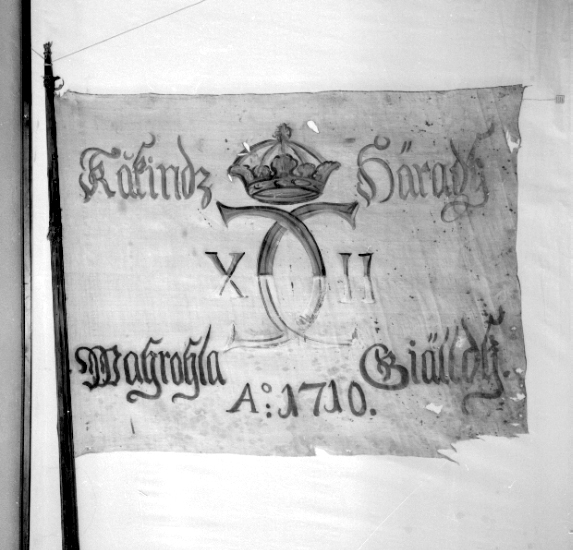 Kåkindz Häradz
X II
Wahrohla Giälldz.
A:o 1710.